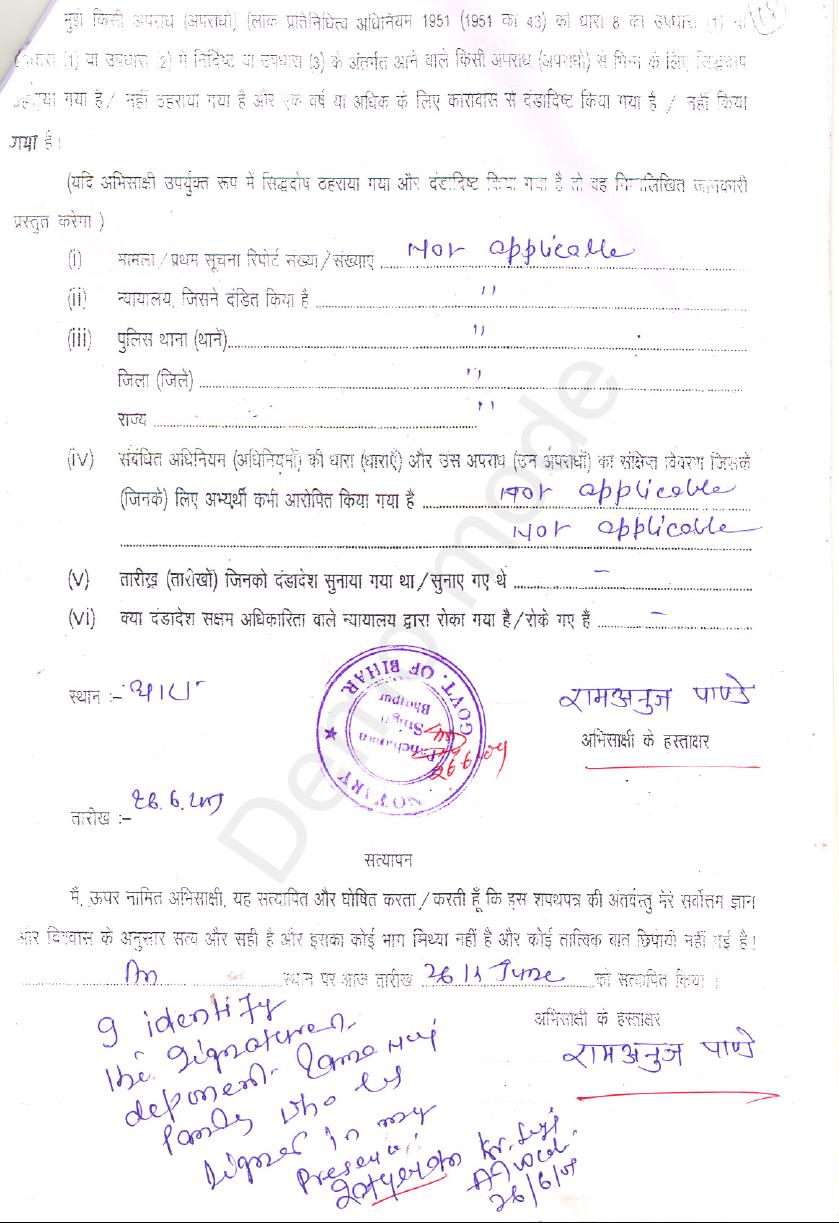 मुझे किसी अपराध (अपराधों) (लोक प्रतिनिधित्व अधिनियम 1951 (1951 का 43) की धारा 8 की उपधारा (1) या
उपधारा (1) या उपधारा (2) में निर्दिष्ट या उपधारा (3) के अंतर्गत आने वाले किसी अपराध (अपराधों) से भिन्न के लिए सिद्धदोष
ठहराया गया है / नहीं ठहराया गया है और एक वर्ष या अधिक के लिए कारावास से दंडादिष्ट किया गया है / नहीं किया
गया है।
(यदि अभिसाक्षी उपर्युक्त रूप में सिद्धदोष ठहराया गया और दंडादिष्ट किया गया है तो वह निम्नलिखित जानकारी
प्रस्तुत करेगा )
(i) मामला / प्रथम सूचना रिपोर्ट संख्या / संख्याएं Not applicable
(ii) न्यायालय, जिसने दंडित किया है "
(iii) पुलिस थाना (थाने) "
जिला (जिले) "
राज्य "
(iv) संबंधित अधिनियम (अधिनियमों) की धारा (धाराएँ) और उस अपराध (उन अपराधों) का संक्षिप्त विवरण जिसके
(जिनके) लिए अभ्यर्थी कभी आरोपित किया गया है Not applicable
Not applicable
(v) तारीख (तारीखों) जिनको दंडादेश सुनाया गया था / सुनाए गए थे –
(vi) क्या दंडादेश सक्षम अधिकारिता वाले न्यायालय द्वारा रोका गया है / रोके गए हैं –
NOTARY ★ GOVT. OF BIHAR
Singh
Bhojpur
26.6.09
स्थान :- आरा
रामअनुज पाण्डे
अभिसाक्षी के हस्ताक्षर
तारीख :- 26.6.2009
सत्यापन
मैं, ऊपर नामित अभिसाक्षी, यह सत्यापित और घोषित करता / करती हूँ कि इस शपथपत्र की अंतर्वस्तु मेरे सर्वोत्तम ज्ञान
और विश्वास के अनुसार सत्य और सही है और इसका कोई भाग मिथ्या नहीं है और कोई तात्विक बात छिपायी नहीं गई है।
स्थान पर आज तारीख 26th June को सत्यापित किया ।
अभिसाक्षी के हस्ताक्षर
रामअनुज पाण्डे
I identify
the signature
deponent
who
signed in my
presence
26/6/09
Demo mode